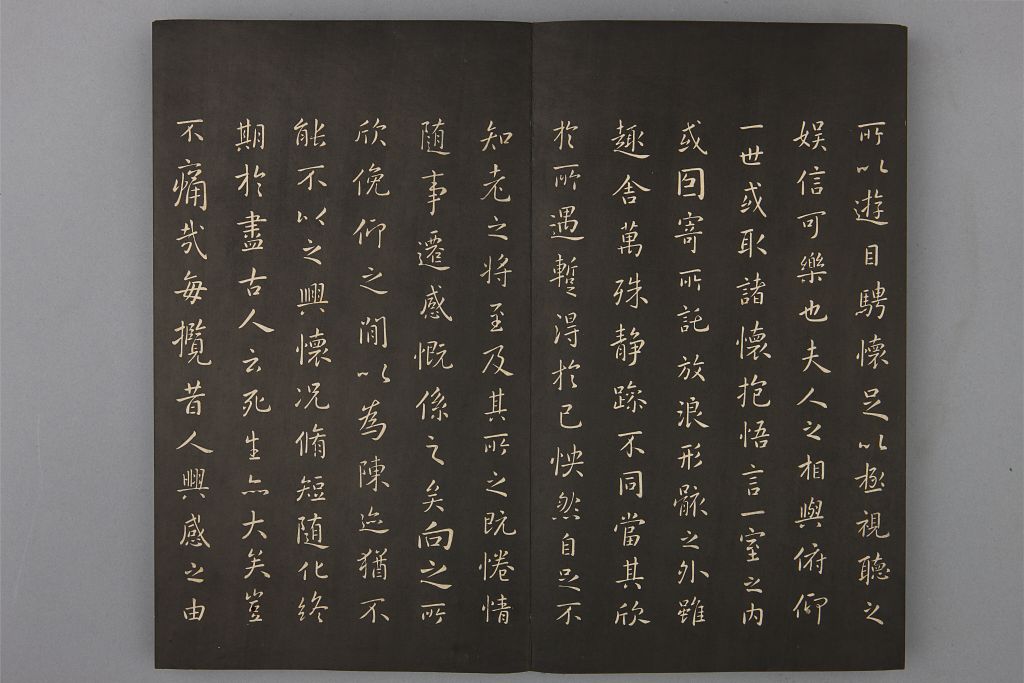 所以遊目騁懷足以極視聽之
娱信可樂也夫人之相與俯仰
一世或取諸懷抱悟言一室之内
或因寄所託放浪形骸之外雖
趣舍萬殊静躁不同當其欣
於所遇蹔得於己怏然自足不
知老之将至及其所之既惓情
随事遷感慨係之矣向之所
欣俛仰之閒以為陳迹猶不
能不以之興懷况脩短随化終
期於盡古人云死生亦大矣豈
不痛哉每攬昔人興感之由